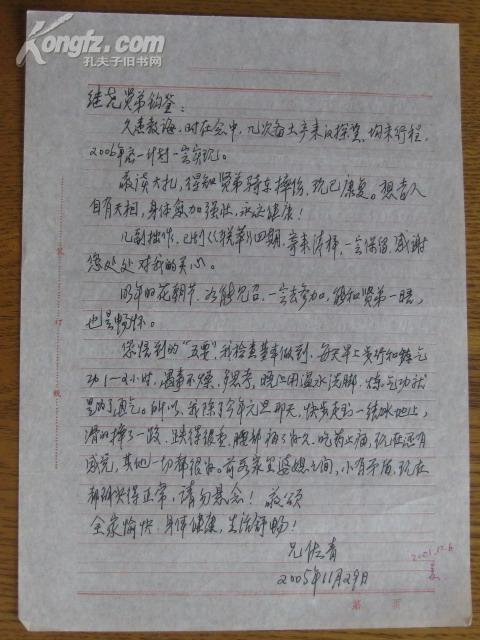 Kongfz.com
孔夫子旧书网
继尧贤弟钧鉴：
久违教诲，时在念中，几次备土产来汉探望，均未行程，
2006年底一计划一定实现。
敬读大札，得知贤弟骑车摔伤，现已康复。想吉人
自有天相，身体愈加强壮，永远健康！
几副拙作，已刊《联萃》四期，寄来清样，一定保留，感谢
您处处对我的关心。
明年的花朝节，如能允召，一定去参加，能和贤弟一晤，
也是畅怀。
您悟到的"五要"我检查基本做到，每天早上步行和练气
功1—2小时，遇事不燥，多思考，晚上用温水洗脚，练气功就
是为了通气。所以，我除了今年元旦那天，快步走到一结冰地上，
滑的摔了一跤，跌得很重，腰部痛了好久，吃药止痛，现在还有
感觉，其他一切都很好。前段家里婆媳之间，小有矛盾，现在
都融洽得正常，请勿悬念！敬颂
全家愉快，身体健康，生活舒畅！
兄 佐青
2005年11月29日
2005.12.6
装
订
线
第 页